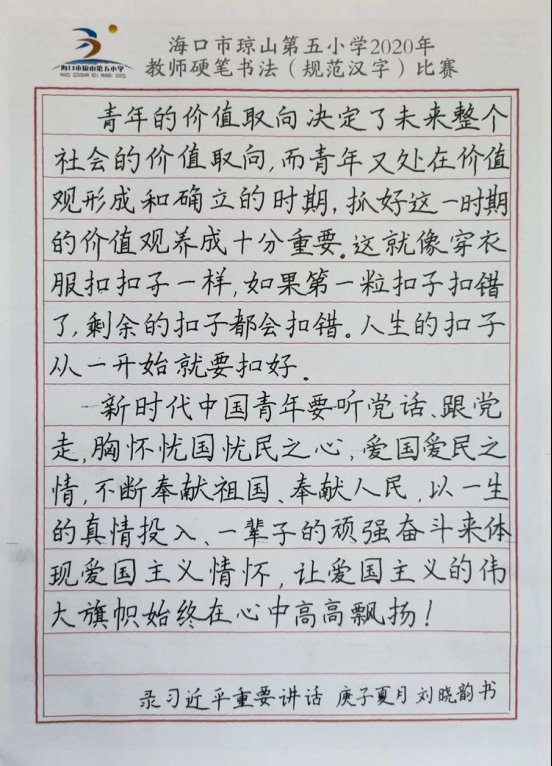 海口市琼山第五小学2020年
教师硬笔书法（规范汉字）比赛
海口市琼山第五小学
青年的价值取向决定了未来整个
社会的价值取向,而青年又处在价值
观形成和确立的时期,抓好这一时期
的价值观养成十分重要。这就像穿衣
服扣扣子一样,如果第一粒扣子扣错
了,剩余的扣子都会扣错。人生的扣子
从一开始就要扣好。
新时代中国青年要听党话、跟党
走,胸怀忧国忧民之心,爱国爱民之
情,不断奉献祖国、奉献人民,以一生
的真情投入、一辈子的顽强奋斗来体
现爱国主义情怀,让爱国主义的伟
大旗帜始终在心中高高飘扬!
录习近平重要讲话 庚子夏月 刘晓韵书